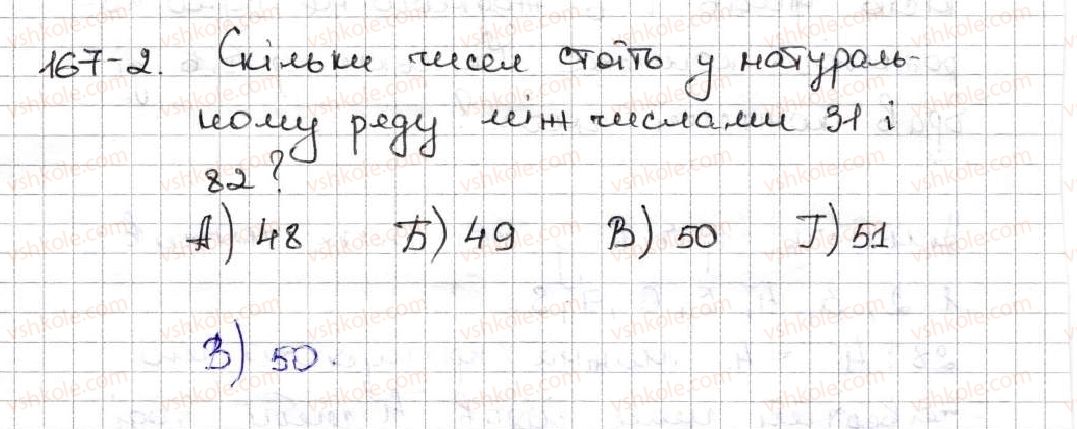 167-2. Скільки чисел стоїть у натураль-
ному ряду між числами 31 і
82?
А) 48 Б) 49 В) 50 Г) 51
В) 50.